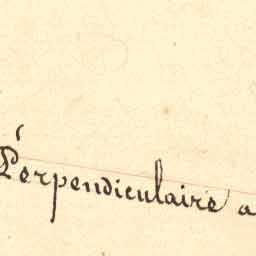 Perpendiculaire a